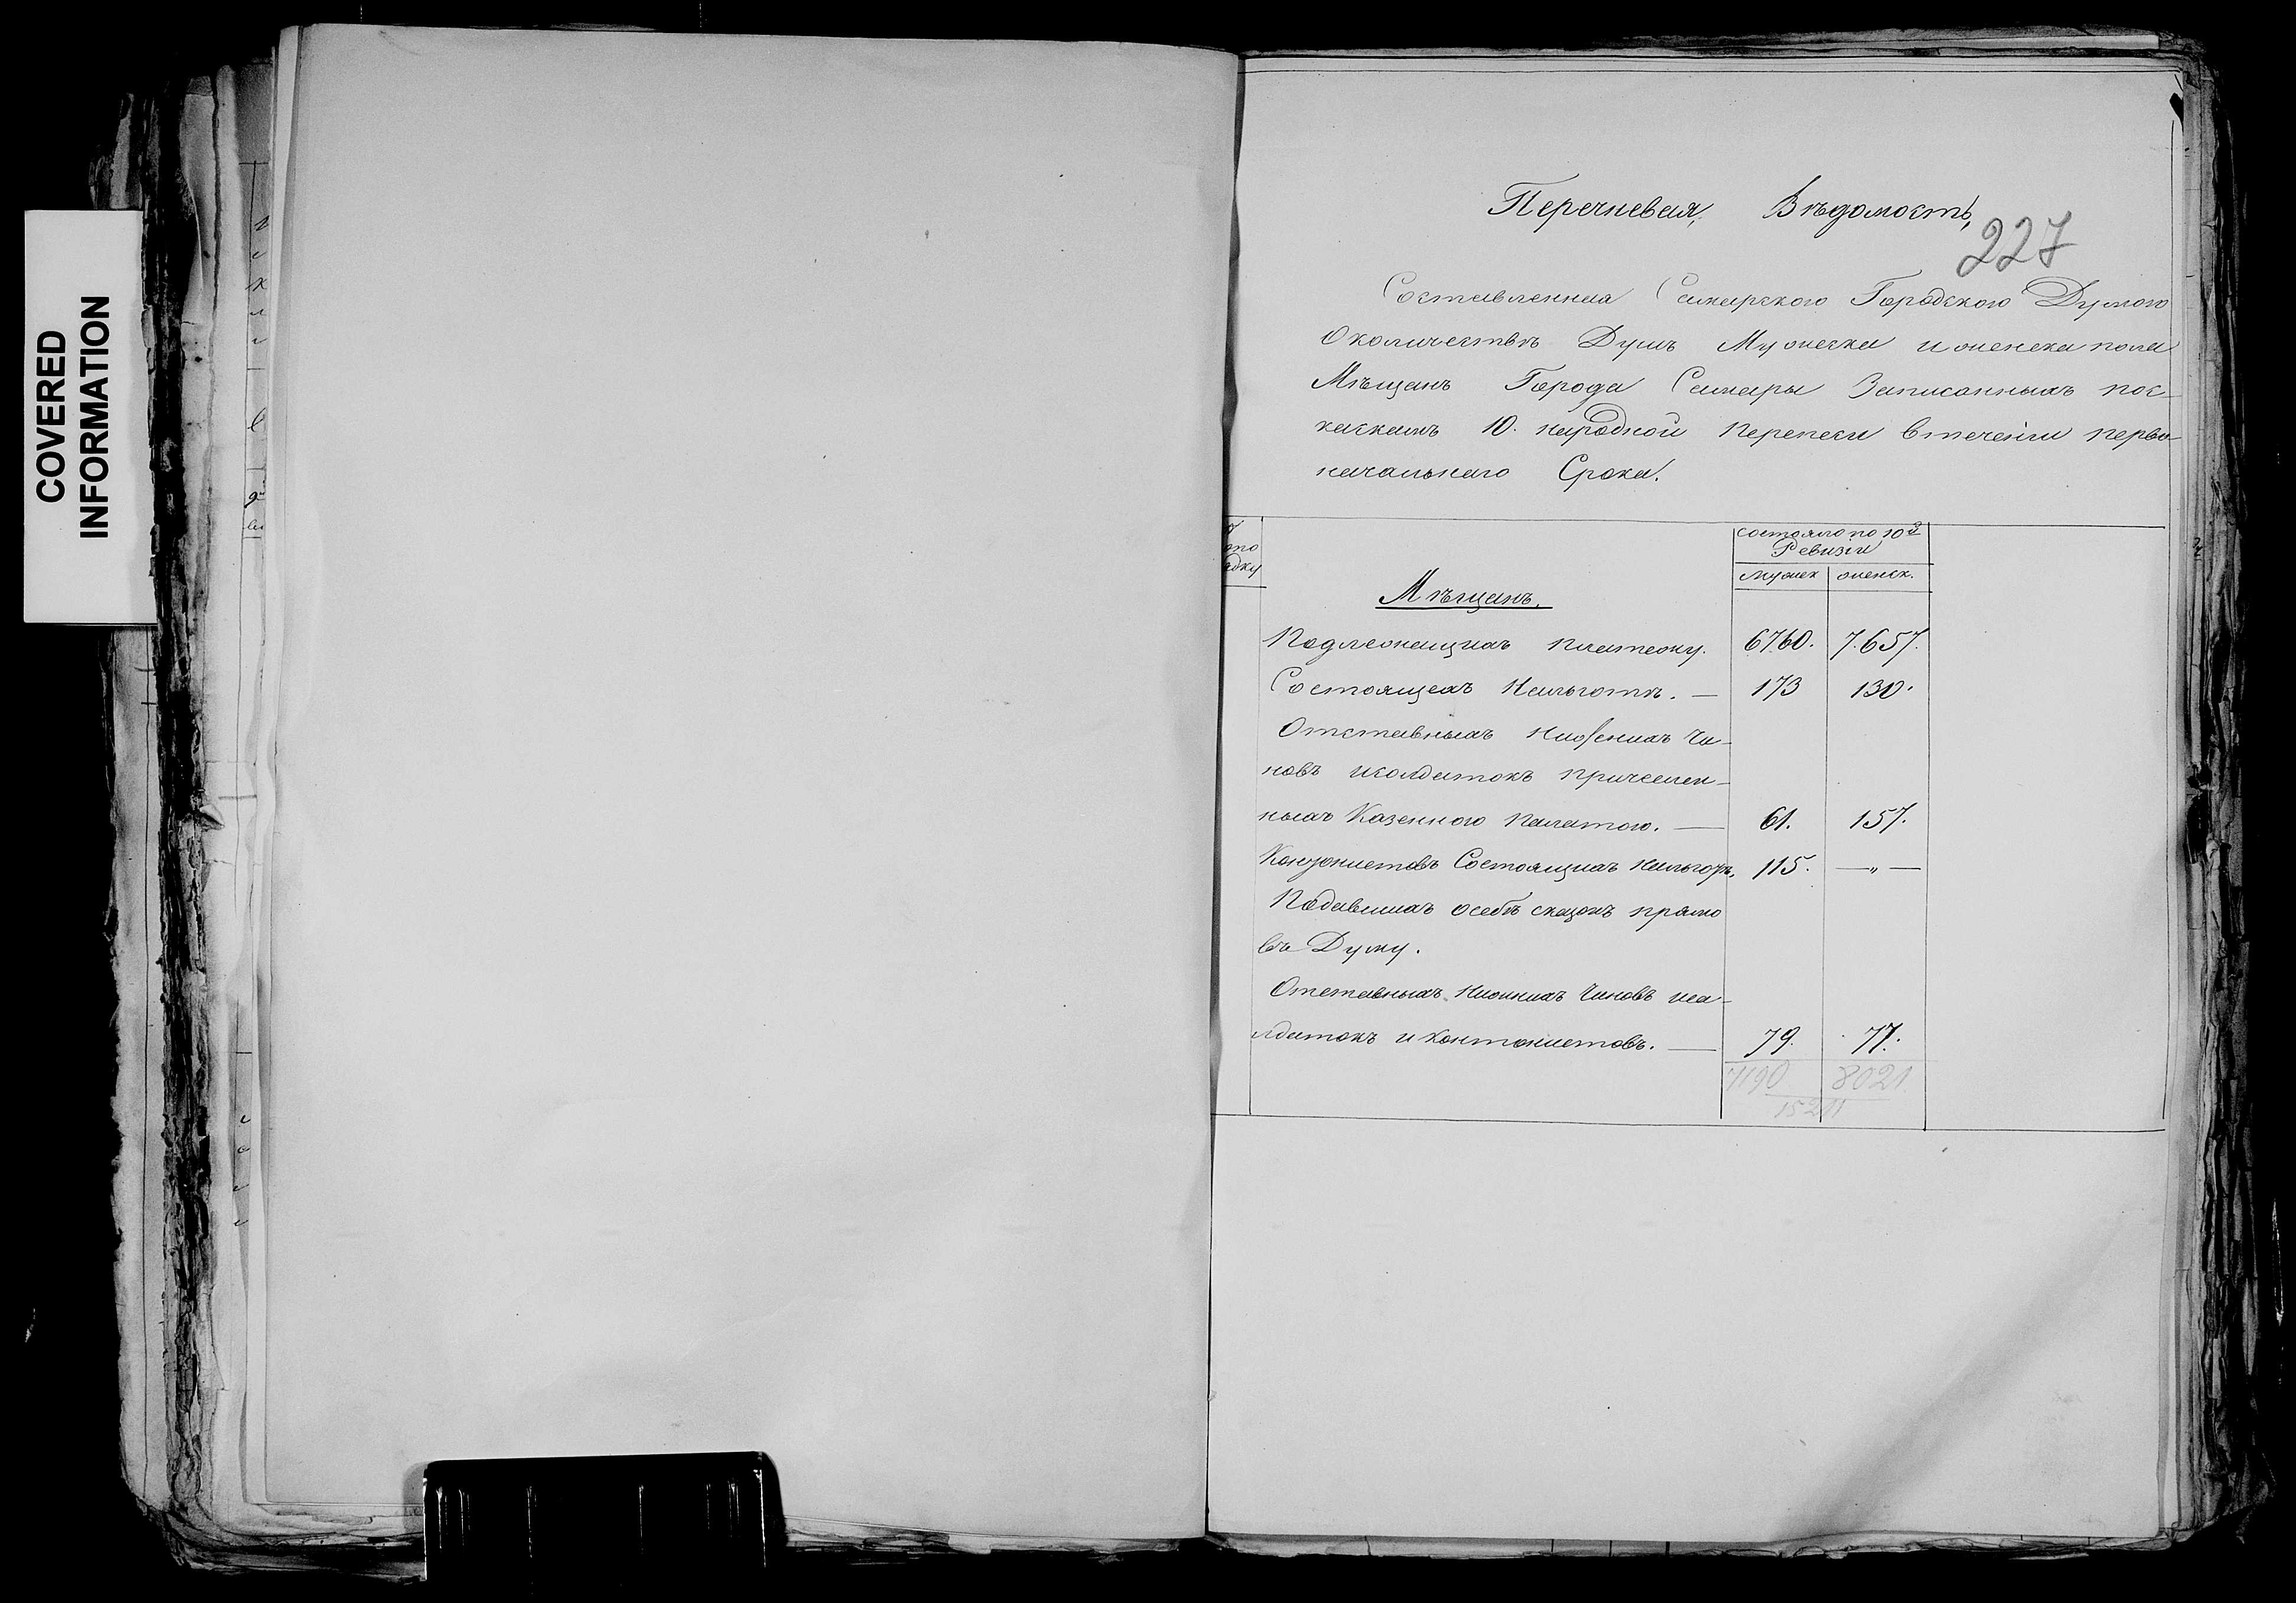 COVERED
INFORMATION
Перечневая Вѣдомость,
227
Составленная Самарскою Городскою Думою
О количествѣ Душъ Мужеска и женска пола
Мѣщанъ Города Самары Записанныхъ пос-
каскамъ 10. народной Переписи втеченіи перво-
начальнаго Срока.
состояло по 10й
Ревизіи
мужеск женск.
Мѣщанъ.
Подлежащихъ платежу. 6760. 7.657.
Состоящехъ Нальготѣ. — 173 130.
Отставныхъ нижнихъ Чи-
новъ исолдатокъ причислен-
ныхъ Казенною палатою. — 61. 157.
Контонистовъ Состоящихъ нальготѣ. 115. — „ —
Подавшихъ осебѣ сказокъ прямо
въ Думу.
Отставныхъ нижнихъ Чиновъ исо-
лдатокъ и контонистовъ. — 79. 77.
7190 8021.
15211